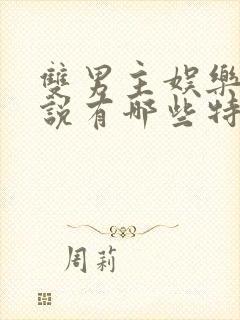 雙男主娛樂
說有哪些特
周莉